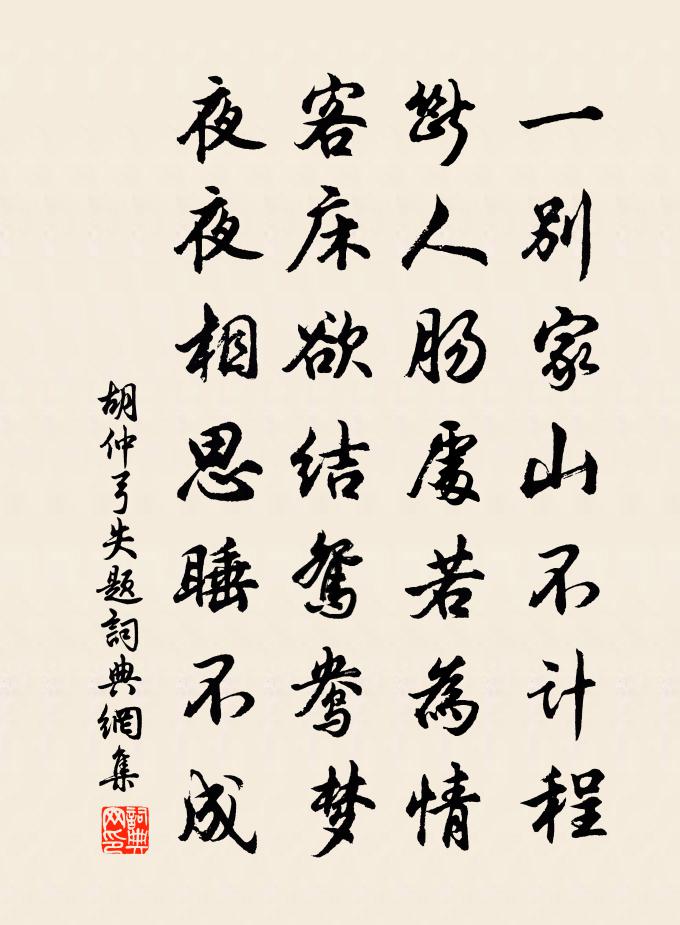 一别家山不计程
断人肠處若為情
客床欲结鸳鸯梦
夜夜相思睡不成
胡仲弓失题詞典網集
詞典網印